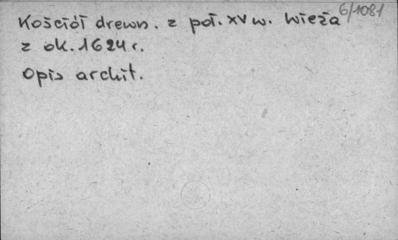 Kościół drewn. z poł. XV w. Wieża 6/1081
z ok. 1624 r.
Opis archit.